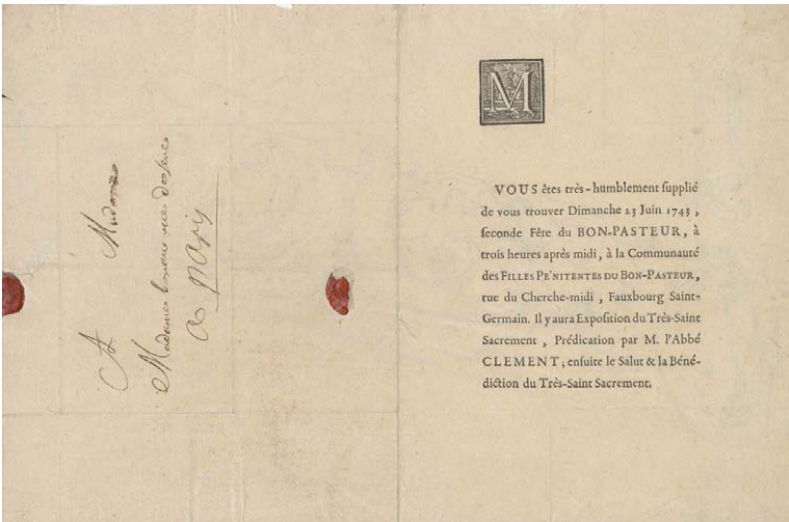 A Madame
Madame
A paris
M
VOUS êtes très-humblement ſupplié
de vous trouver Dimanche 23 Juin 1743,
ſeconde Fête du BON-PASTEUR, à
trois heures après midi, à la Communauté
des FILLES PE'NITENTES DU BON-PASTEUR,
rue du Cherche-midi, Fauxbourg Saint-
Germain. Il y aura Expoſition du Très-Saint
Sacrement, Prédication par M. l'Abbé
CLEMENT; enſuite le Salut & la Béné-
diction du Très-Saint Sacrement.